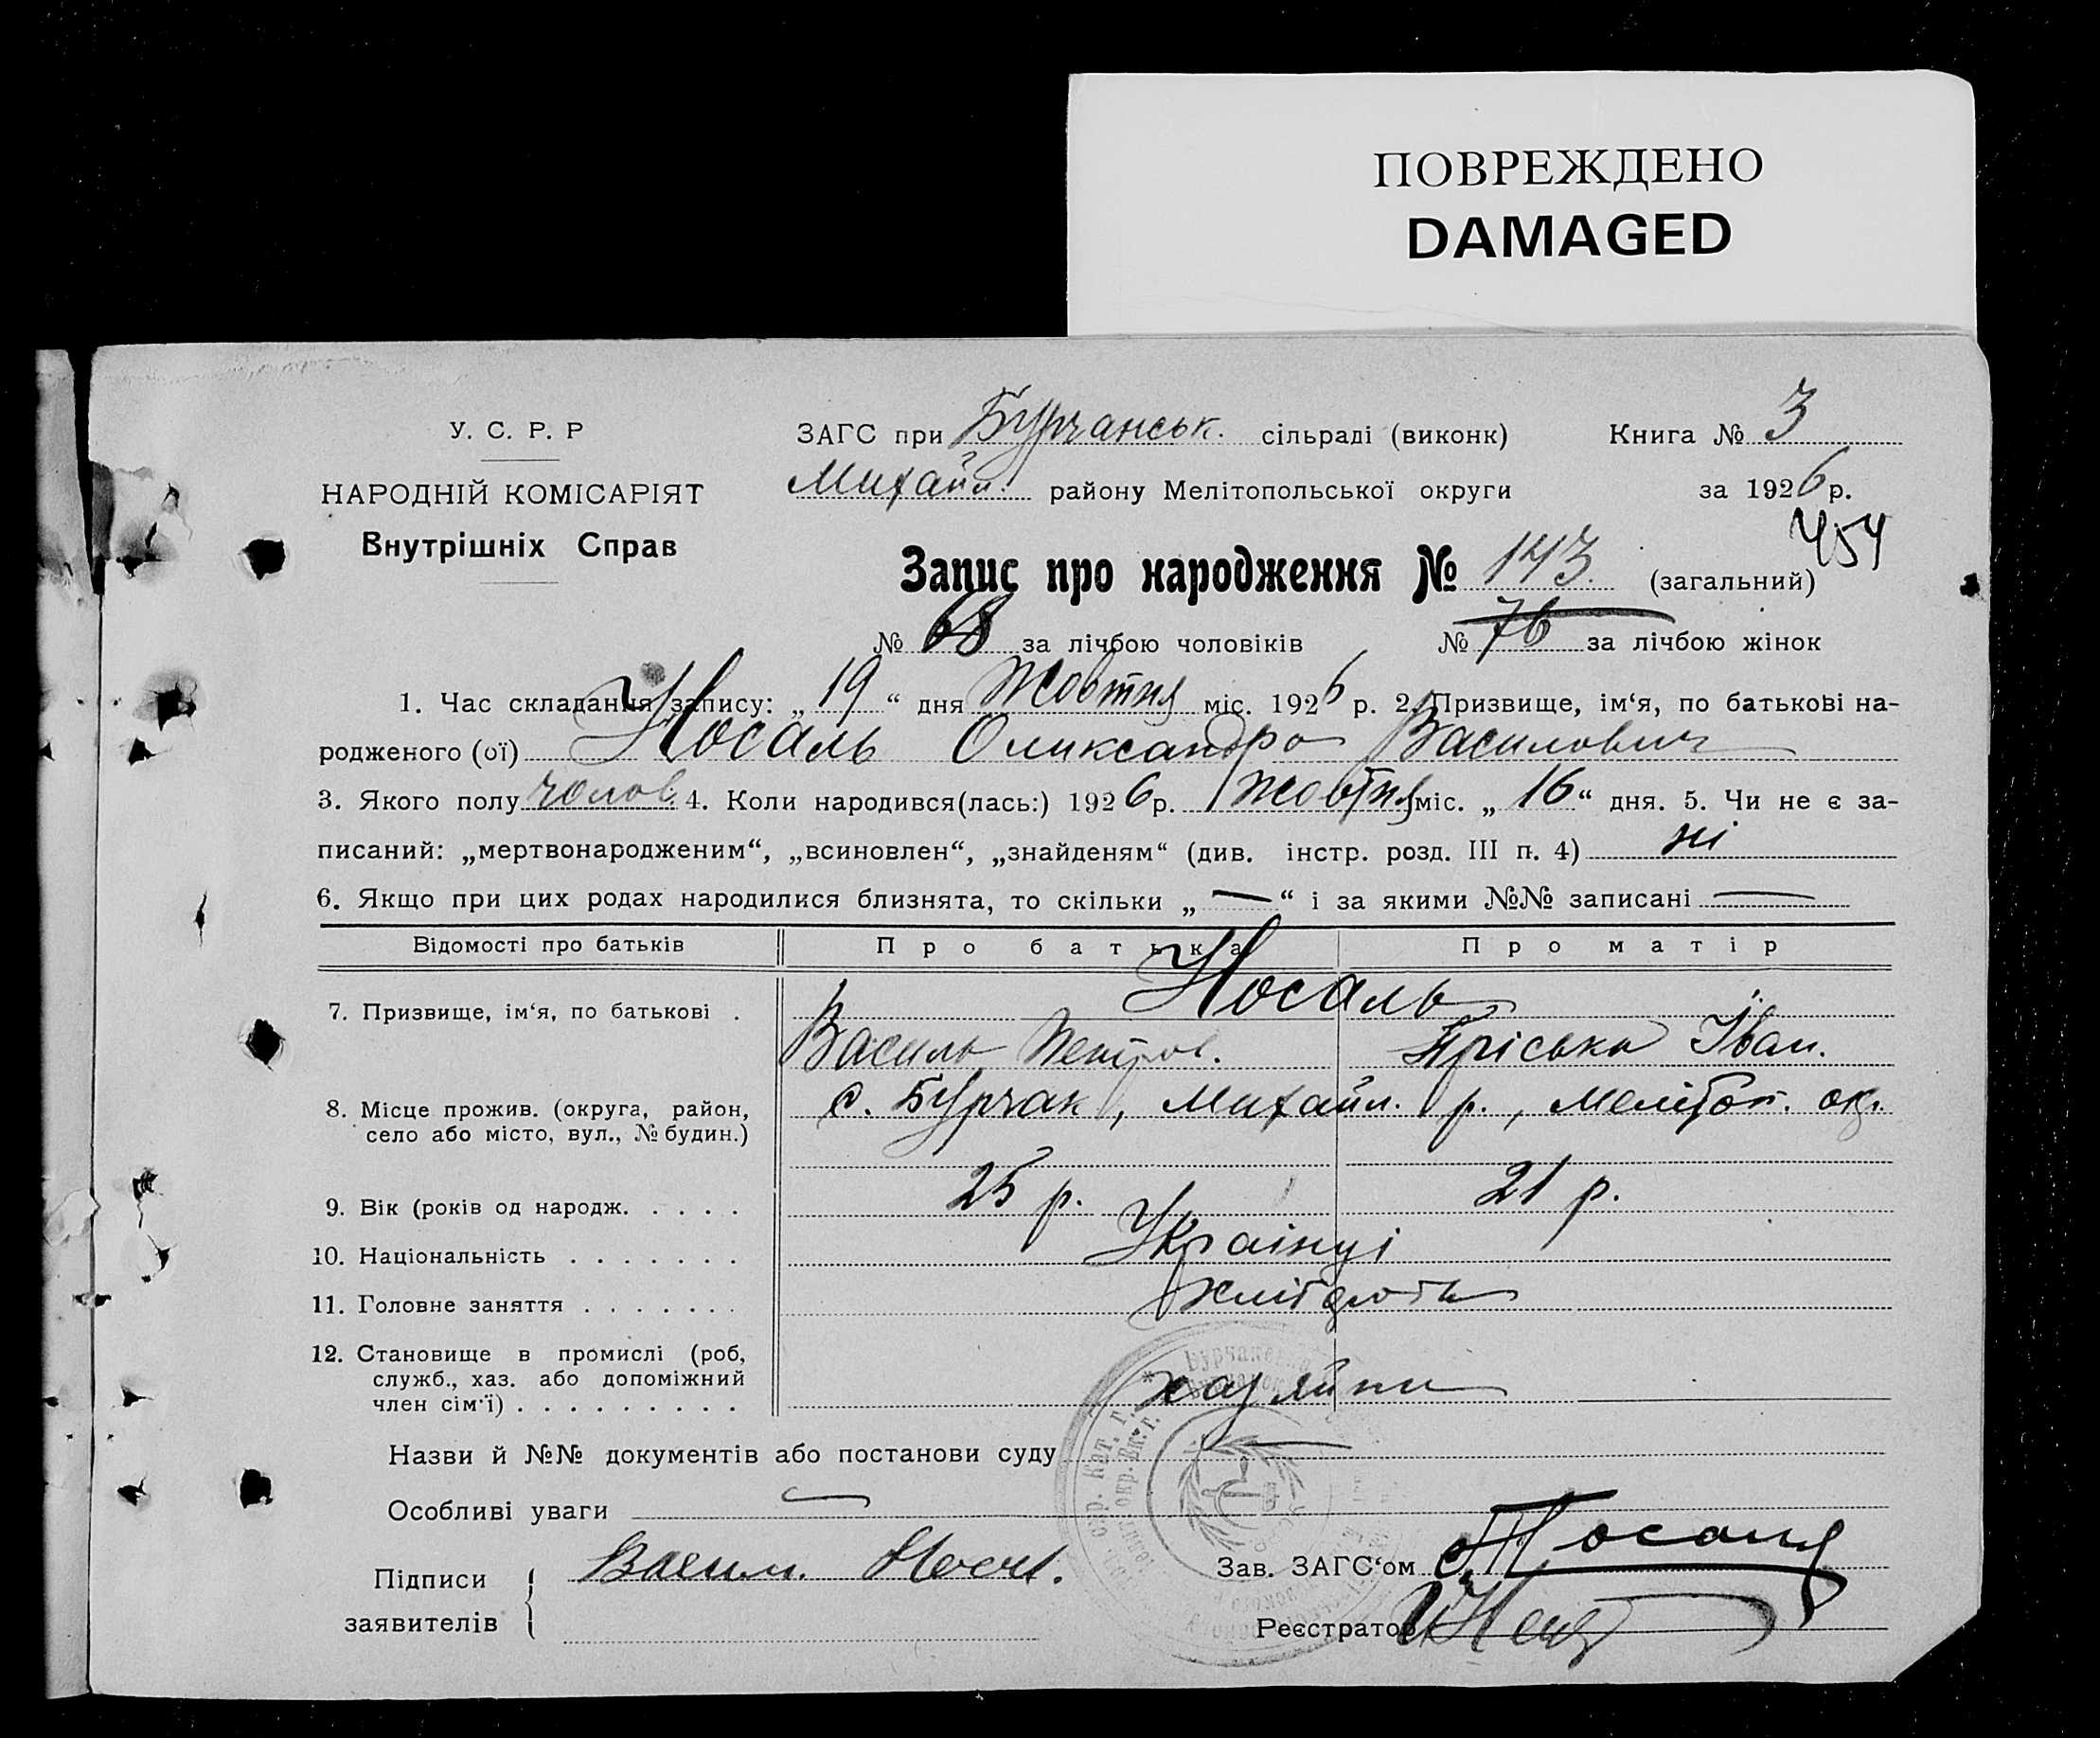 ПОВРЕЖДЕНО
DAMAGED
У. С. Р. Р
НАРОДНІЙ КОМІСАРІЯТ
Внутрішніх Справ
ЗАГС при Бурчанськ. сільраді (виконк) Книга № 3
Михайл. району Мелітопольської округи за 1926 р.
454
Запис про народження № 143. (загальний)
№ 68 за лічбою чоловіків № 76 за лічбою жінок
1. Час складання запису: „19“ дня Жовтня міс. 1926 р. 2. Призвище, ім‘я, по батькові на-
родженого (ої) Носаль Оликсандро Василович
3. Якого полу чолов. 4. Коли народився(лась:) 1926 р. Жовтня міс. „16“ дня. 5. Чи не є за-
писаний: „мертвонародженим“, „всиновлен“, „знайденям“ (див. інстр. розд. III п. 4) ні
6. Якщо при цих родах народилися близнята, то скільки „—“ і за якими №№ записані —
Відомості про батьків Про батька Про матір
7. Призвище, ім‘я, по батькові . Носаль
Василь Петров. Пріська Іван.
8. Місце прожив. (округа, район, с. Бурчак, Михайл. р., Меліт
село або місто, вул., № будин.)
9. Вік (років од народж. . . . . 25 р. 21 р.
10. Національність . . . . . . . Українці
11. Головне заняття . . . . . . .
12. Становище в промислі (роб,
служб., хаз. або допоміжний
член сім‘ї) . . . . . . . . . хазяйни
Назви й №№ документів або постанови суду —
Особливі уваги —
Підписи
заявителів
Васил. Нос
Зав. ЗАГС‘ом
Реєстратор